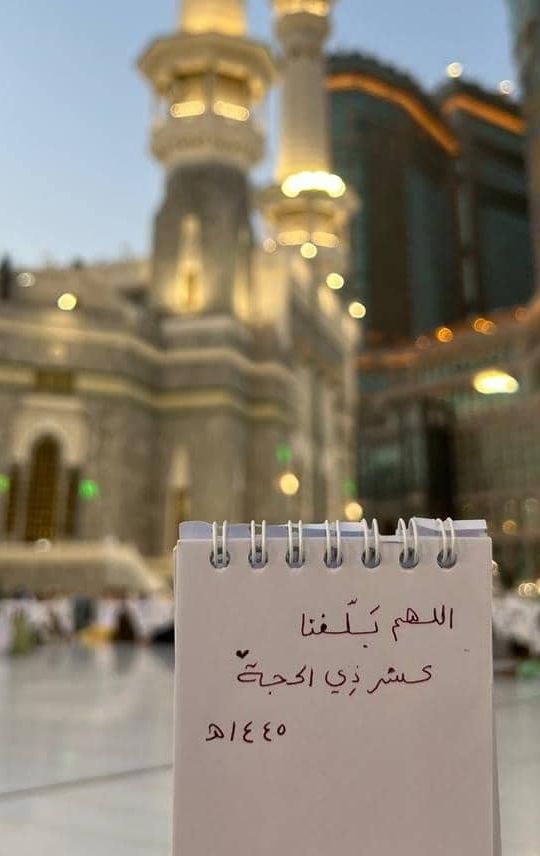 اللهم بَلّغنا
عشر ذِي الحجة
١٤٤٥هـ